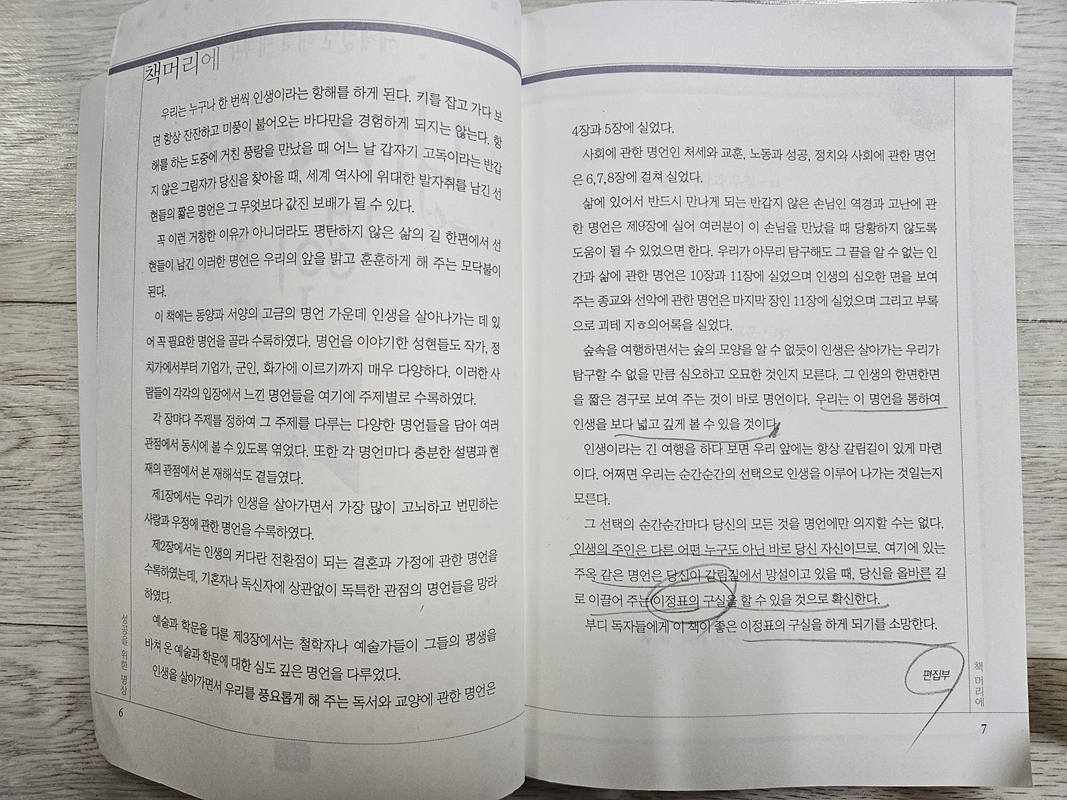 책머리에
우리는 누구나 한 번씩 인생이라는 항해를 하게 된다. 키를 잡고 가다 보
면 항상 잔잔하고 미풍이 불어오는 바다만을 경험하게 되지는 않는다. 항
해를 하는 도중에 거친 풍랑을 만났을 때 어느 날 갑자기 고독이라는 반갑
지 않은 그림자가 당신을 찾아올 때, 세계 역사에 위대한 발자취를 남긴 선
현들의 짧은 명언은 그 무엇보다 값진 보배가 될 수 있다.
꼭 이런 거창한 이유가 아니더라도 평탄하지 않은 삶의 길 한편에서 선
현들이 남긴 이러한 명언은 우리의 앞을 밝고 훈훈하게 해 주는 모닥불이
된다.
이 책에는 동양과 서양의 고금의 명언 가운데 인생을 살아나가는 데 있
어 꼭 필요한 명언을 골라 수록하였다. 명언을 이야기한 성현들도 작가, 정
치가에서부터 기업가, 군인, 화가에 이르기까지 매우 다양하다. 이러한 사
람들이 각각의 입장에서 느낀 명언들을 여기에 주제별로 수록하였다.
각 장마다 주제를 정하여 그 주제를 다루는 다양한 명언들을 담아 여러
관점에서 동시에 볼 수 있도록 엮었다. 또한 각 명언마다 충분한 설명과 현
재의 관점에서 본 재해석도 곁들였다.
제1장에서는 우리가 인생을 살아가면서 가장 많이 고뇌하고 번민하는
사랑과 우정에 관한 명언을 수록하였다.
제2장에서는 인생의 커다란 전환점이 되는 결혼과 가정에 관한 명언을
수록하였는데, 기혼자나 독신자에 상관없이 독특한 관점의 명언들을 망라
하였다.
예술과 학문을 다룬 제3장에서는 철학자나 예술가들이 그들의 평생을
바쳐 온 예술과 학문에 대한 심도 깊은 명언을 다루었다.
인생을 살아가면서 우리를 풍요롭게 해 주는 독서와 교양에 관한 명언은
성공을 위한 명상
6
4장과 5장에 실었다.
사회에 관한 명언인 처세와 교훈, 노동과 성공, 정치와 사회에 관한 명언
은 6,7,8장에 걸쳐 실었다.
삶에 있어서 반드시 만나게 되는 반갑지 않은 손님인 역경과 고난에 관
한 명언은 제9장에 실어 여러분이 이 손님을 만났을 때 당황하지 않도록
도움이 될 수 있었으면 한다. 우리가 아무리 탐구해도 그 끝을 알 수 없는 인
간과 삶에 관한 명언은 10장과 11장에 실었으며 인생의 심오한 면을 보여
주는 종교와 선악에 관한 명언은 마지막 장인 11장에 실었으며 그리고 부록
으로 괴테 지ㅎ의어록을 실었다.
숲속을 여행하면서는 숲의 모양을 알 수 없듯이 인생은 살아가는 우리가
탐구할 수 없을 만큼 심오하고 오묘한 것인지 모른다. 그 인생의 한면한면
을 짧은 경구로 보여 주는 것이 바로 명언이다. 우리는 이 명언을 통하여
인생을 보다 넓고 깊게 볼 수 있을 것이다.
인생이라는 긴 여행을 하다 보면 우리 앞에는 항상 갈림길이 있게 마련
이다. 어쩌면 우리는 순간순간의 선택으로 인생을 이루어 나가는 것일는지
모른다.
그 선택의 순간순간마다 당신의 모든 것을 명언에만 의지할 수는 없다.
인생의 주인은 다른 어떤 누구도 아닌 바로 당신 자신이므로. 여기에 있는
주옥 같은 명언은 당신이 갈림길에서 망설이고 있을 때, 당신을 올바른 길
로 이끌어 주는 이정표의 구실을 할 수 있을 것으로 확신한다.
부디 독자들에게 이 책이 좋은 이정표의 구실을 하게 되기를 소망한다.
편집부
책머리에
7